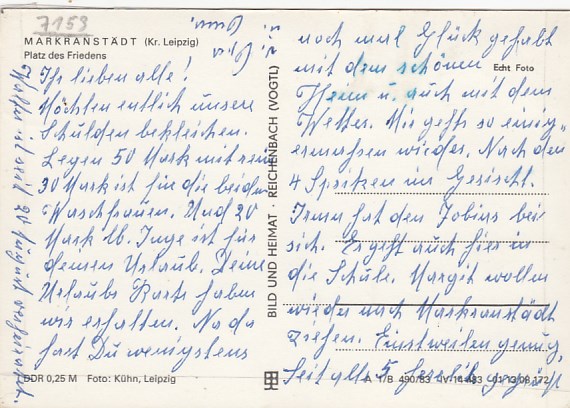 7159
MARKRANSTÄDT (Kr. Leipzig)
Platz des Friedens
Ihr lieben alle!
Möchten entlich unsere
Schulden bekleichen.
Legen 50 Mark mit rein
30 Mark ist für die beiden
Waschfrauen. Und 20
Mark lb. Inge ist für
deinen Urlaub. Deine
Urlaubs Karte haben
wir erhalten. Na da
hast Du wenigstens
DDR 0,25 M Foto: Kühn, Leipzig
BILD UND HEIMAT · REICHENBACH (VOGTL)
noch mal Glück gehabt
mit dem schönen
Echt Foto
Heim u. auch mit dem
Wetter. Mir gehts so einig
ermassen wieder. Nach den
4 Spritzen im Gesicht.
Irma hat den Tobias bei
sich. Er geht auch hier in
die Schule. Margit wollen
wieder nach Markranstädt
ziehen. Einstweilen genug,
Seit alle 5
A 1/B 490/83 IV-14-483 01 13 08 172